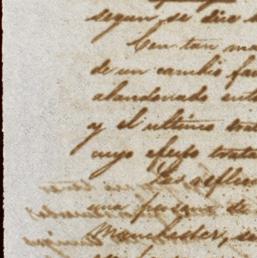 segun se dice
Con tan ma
de un cambio fa
abandonado ent
y el ultimo trat
cuyo efecto trata
Las reflex
una de
Manchester, se